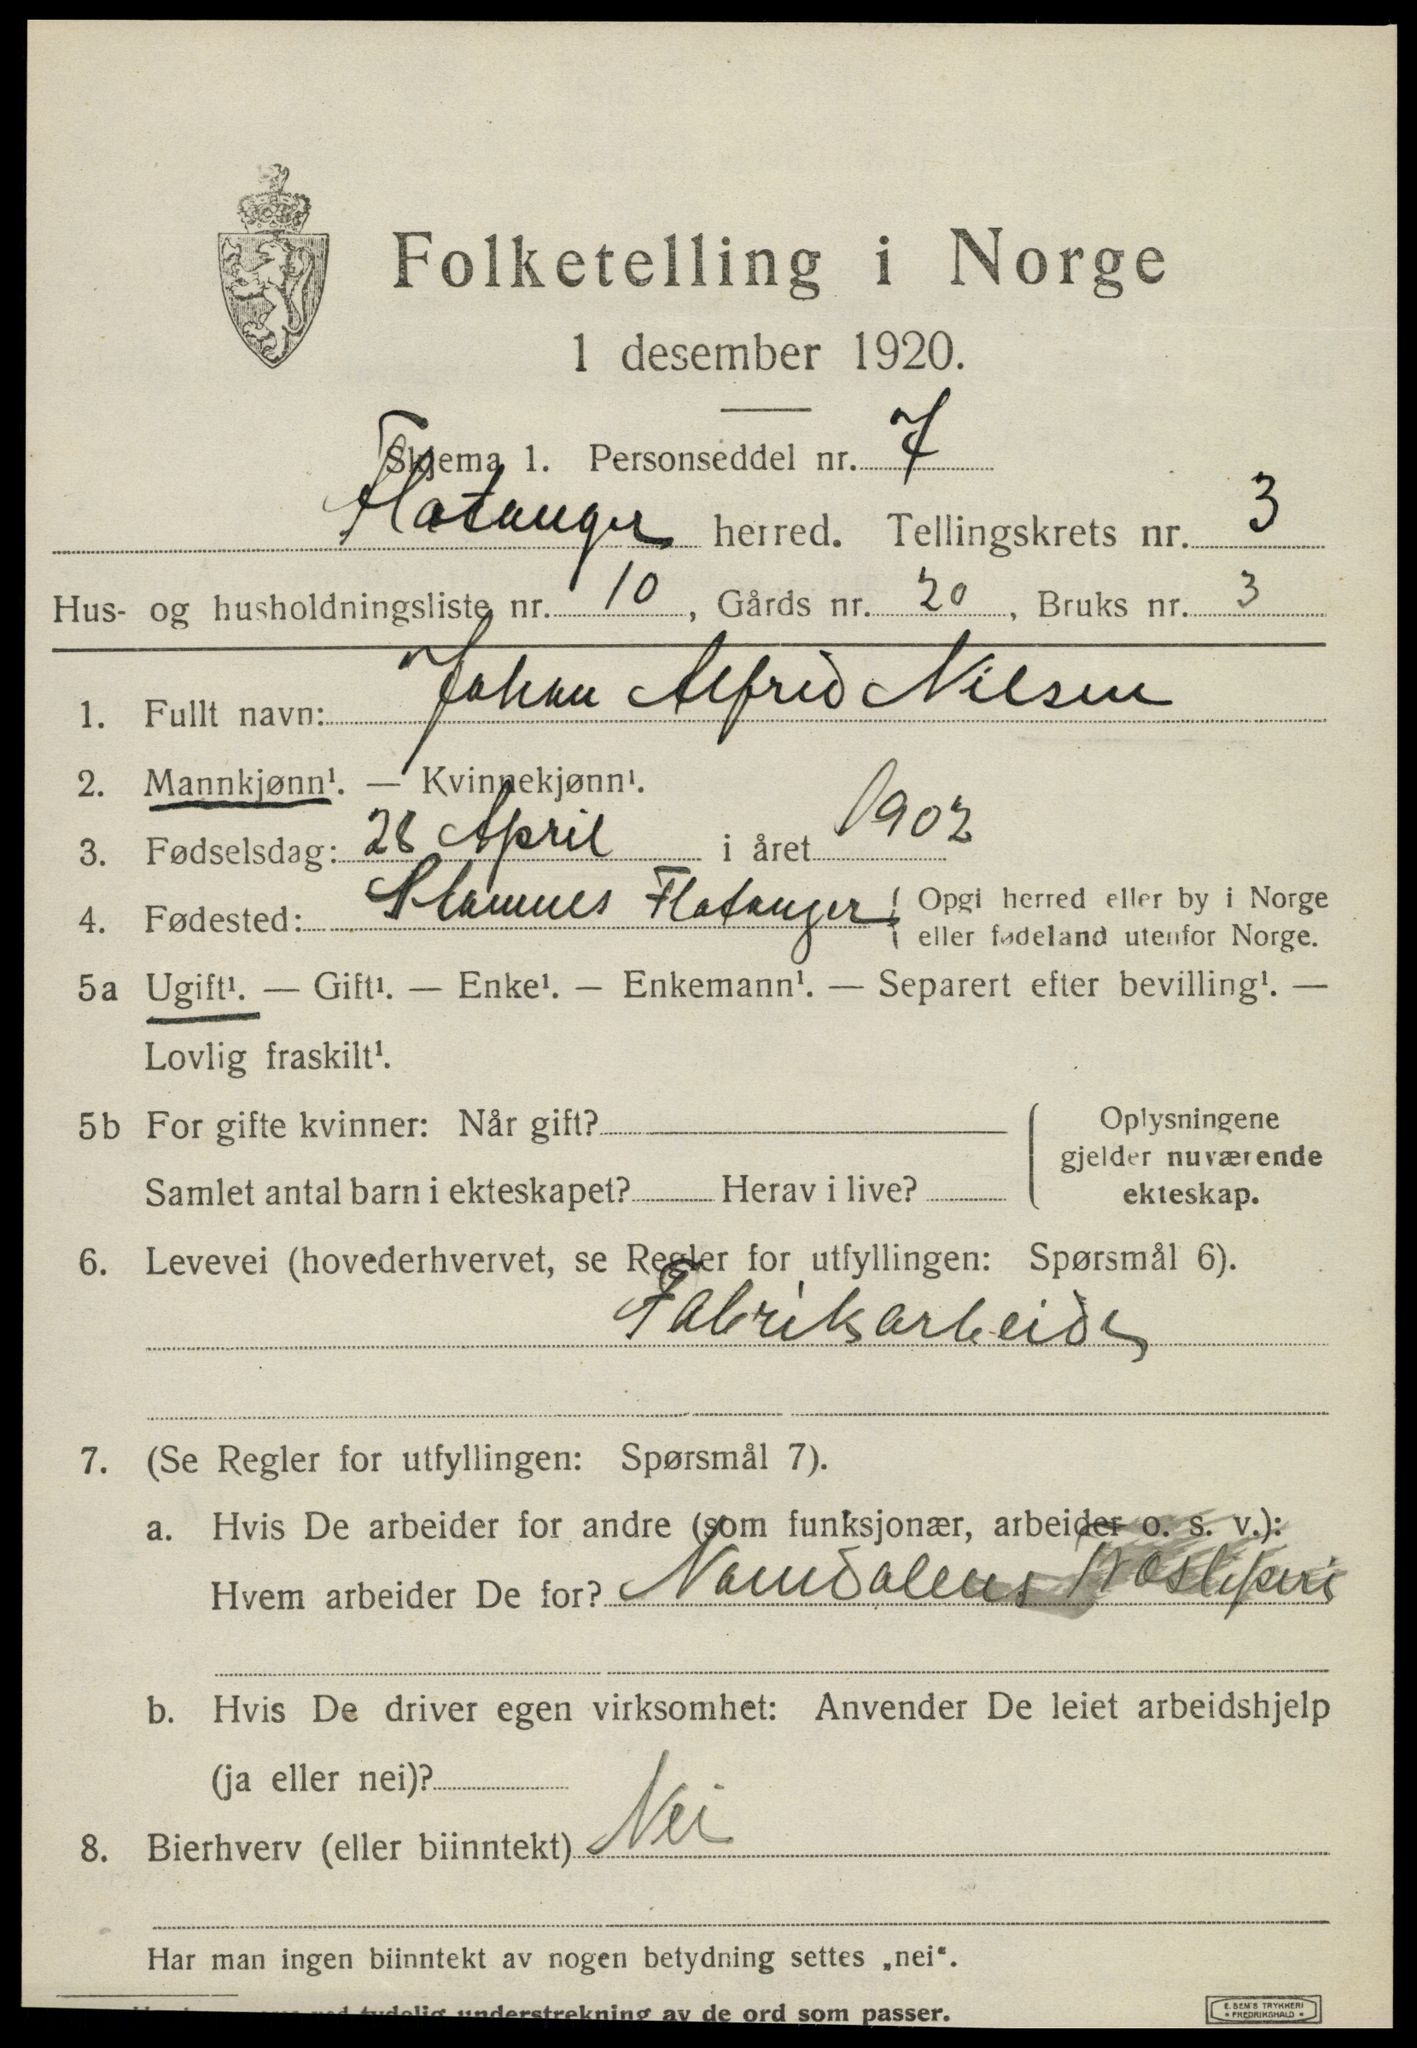 Folketelling i Norge
1 desember 1920.
Skjema 1. Personseddel nr. 7
Flatanger herred. Tellingskrets nr. 3
Hus- og husholdningsliste nr. 10, Gårds nr. 20, Bruks nr. 3
1. Fullt navn: Johan Alfrid Nilsen
2. Mannkjønn¹. — Kvinnekjønn¹.
3. Fødselsdag: 28 April i året 1902
4. Fødested: Flatanger { Opgi herred eller by i Norge
eller fødeland utenfor Norge.
5a Ugift¹. — Gift¹. — Enke¹. — Enkemann¹. — Separert efter bevilling¹. —
Lovlig fraskilt¹.
5b For gifte kvinner: Når gift?
Samlet antal barn i ekteskapet? Herav i live?
Oplysningene
gjelder nuværende
ekteskap.
6. Levevei (hovederhvervet, se Regler for utfyllingen: Spørsmål 6).
Fabrikarbeider
7. (Se Regler for utfyllingen: Spørsmål 7).
a. Hvis De arbeider for andre (som funksjonær, arbeider o. s. v.):
Hvem arbeider De for? Namdalens
b. Hvis De driver egen virksomhet: Anvender De leiet arbeidshjelp
(ja eller nei)?
8. Bierhverv (eller biinntekt) Nei
Har man ingen biinntekt av nogen betydning settes „nei“.
tydelig understrekning av de ord som passer.
E. SEM'S TRYKKERI
* FREDRIKSHALD *